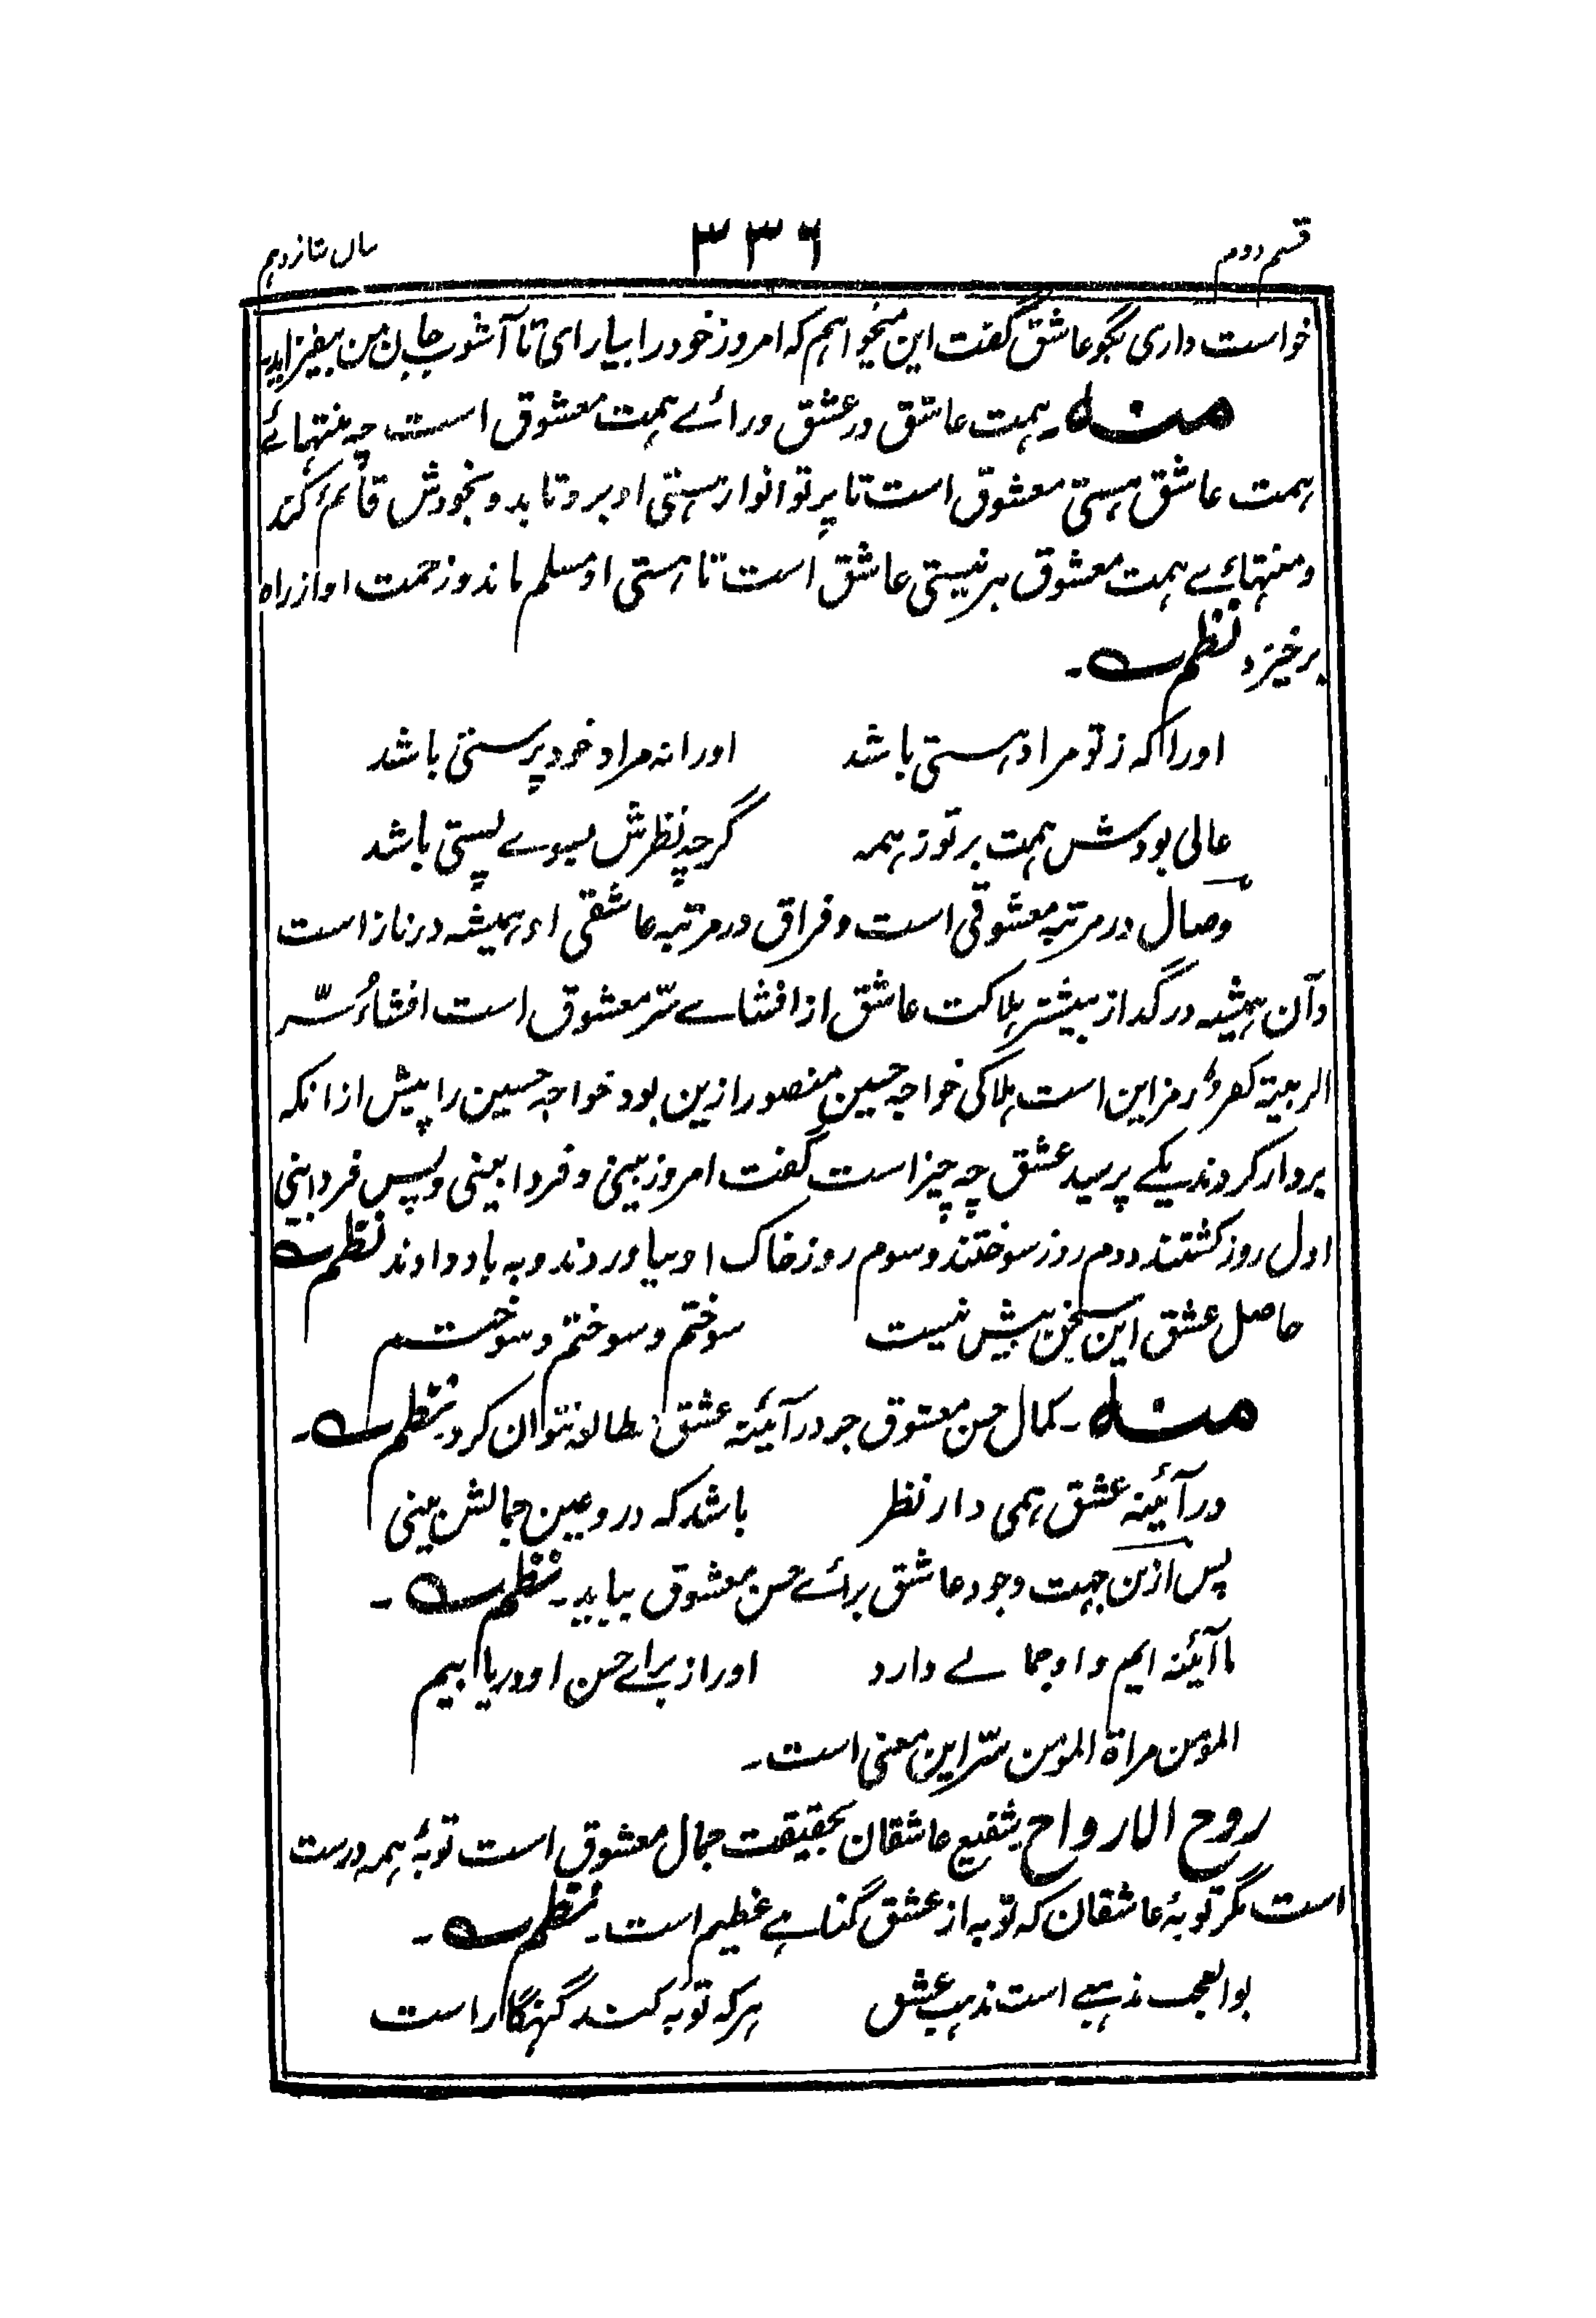 قسم دوم
۳۳۶
سال شازدہم
خواست داری بگو عاشق گفت این میخواہم کہ امروز خود را بیارای تا آشوب جان من بیفزاید
منہ ۔ ہمت عاشق در عشق ورائے ہمت معشوق است چہ منتہائے
ہمت عاشق ہستی معشوق است تا پرتو انوار ہستی او برو تابد و بخودش قائم کند
و منتہائے ہمت معشوق بر نیستی عاشق است تا ہستی او مسلم ماند و زحمت او از راہ
برخیزد نظم ۔
اورا کہ ز تو مراد ہستی باشد اورا نہ مراد خود پرستی باشد
عالی بودش ہمت برتر ز ہمہ گرچہ نظرش بسوے پستی باشد
وصال در مرتبہ معشوقی است و فراق در مرتبہ عاشقی او ہمیشہ در ناز است
و آن ہمیشہ در گداز بیشتر ہلاکت عاشق از افشاے سرّ معشوق است افشاءُ سرّ
الربیتہ کفرٌ رمز این است ہلاکی خواجہ حسین منصور ازین بود خواجہ حسین را پیش از انکہ
بردار کردند یکے پرسید عشق چہ چیز است گفت امروز بینی و فردا بینی و پس فردا بینی
اول روز کشتند دوم روز سوختند و سوم روز خاک او بیاوردند و بہ باد دادند نظم
حاصل عشق این سخن بیش نیست سوختم و سوختم و سوختم
منہ ۔ کمال حسن معشوق جز در آئینہ عشق مطالعہ نتوان کرد نظم ۔
در آئینہ عشق ہمی دار نظر باشد کہ درو عین جمالش بینی
پس ازین جہت وجود عاشق برائے حسن معشوق بیاید ۔ نظم ۔
ما آئینہ ایم و او جمالے دارد اورا از براے حسن او دریابیم
المؤمن مراۃ المؤمن سرّ این معنی است ۔
روح الارواح شفیع عاشقان بحقیقت جمال معشوق است توبۂ ہمہ درست
است مگر توبۂ عاشقان کہ توبہ از عشق گناہے عظیم است ۔ نظم ۔
بوالعجب مذہبے است مذہب عشق ہر کہ توبہ کند گنہگار است